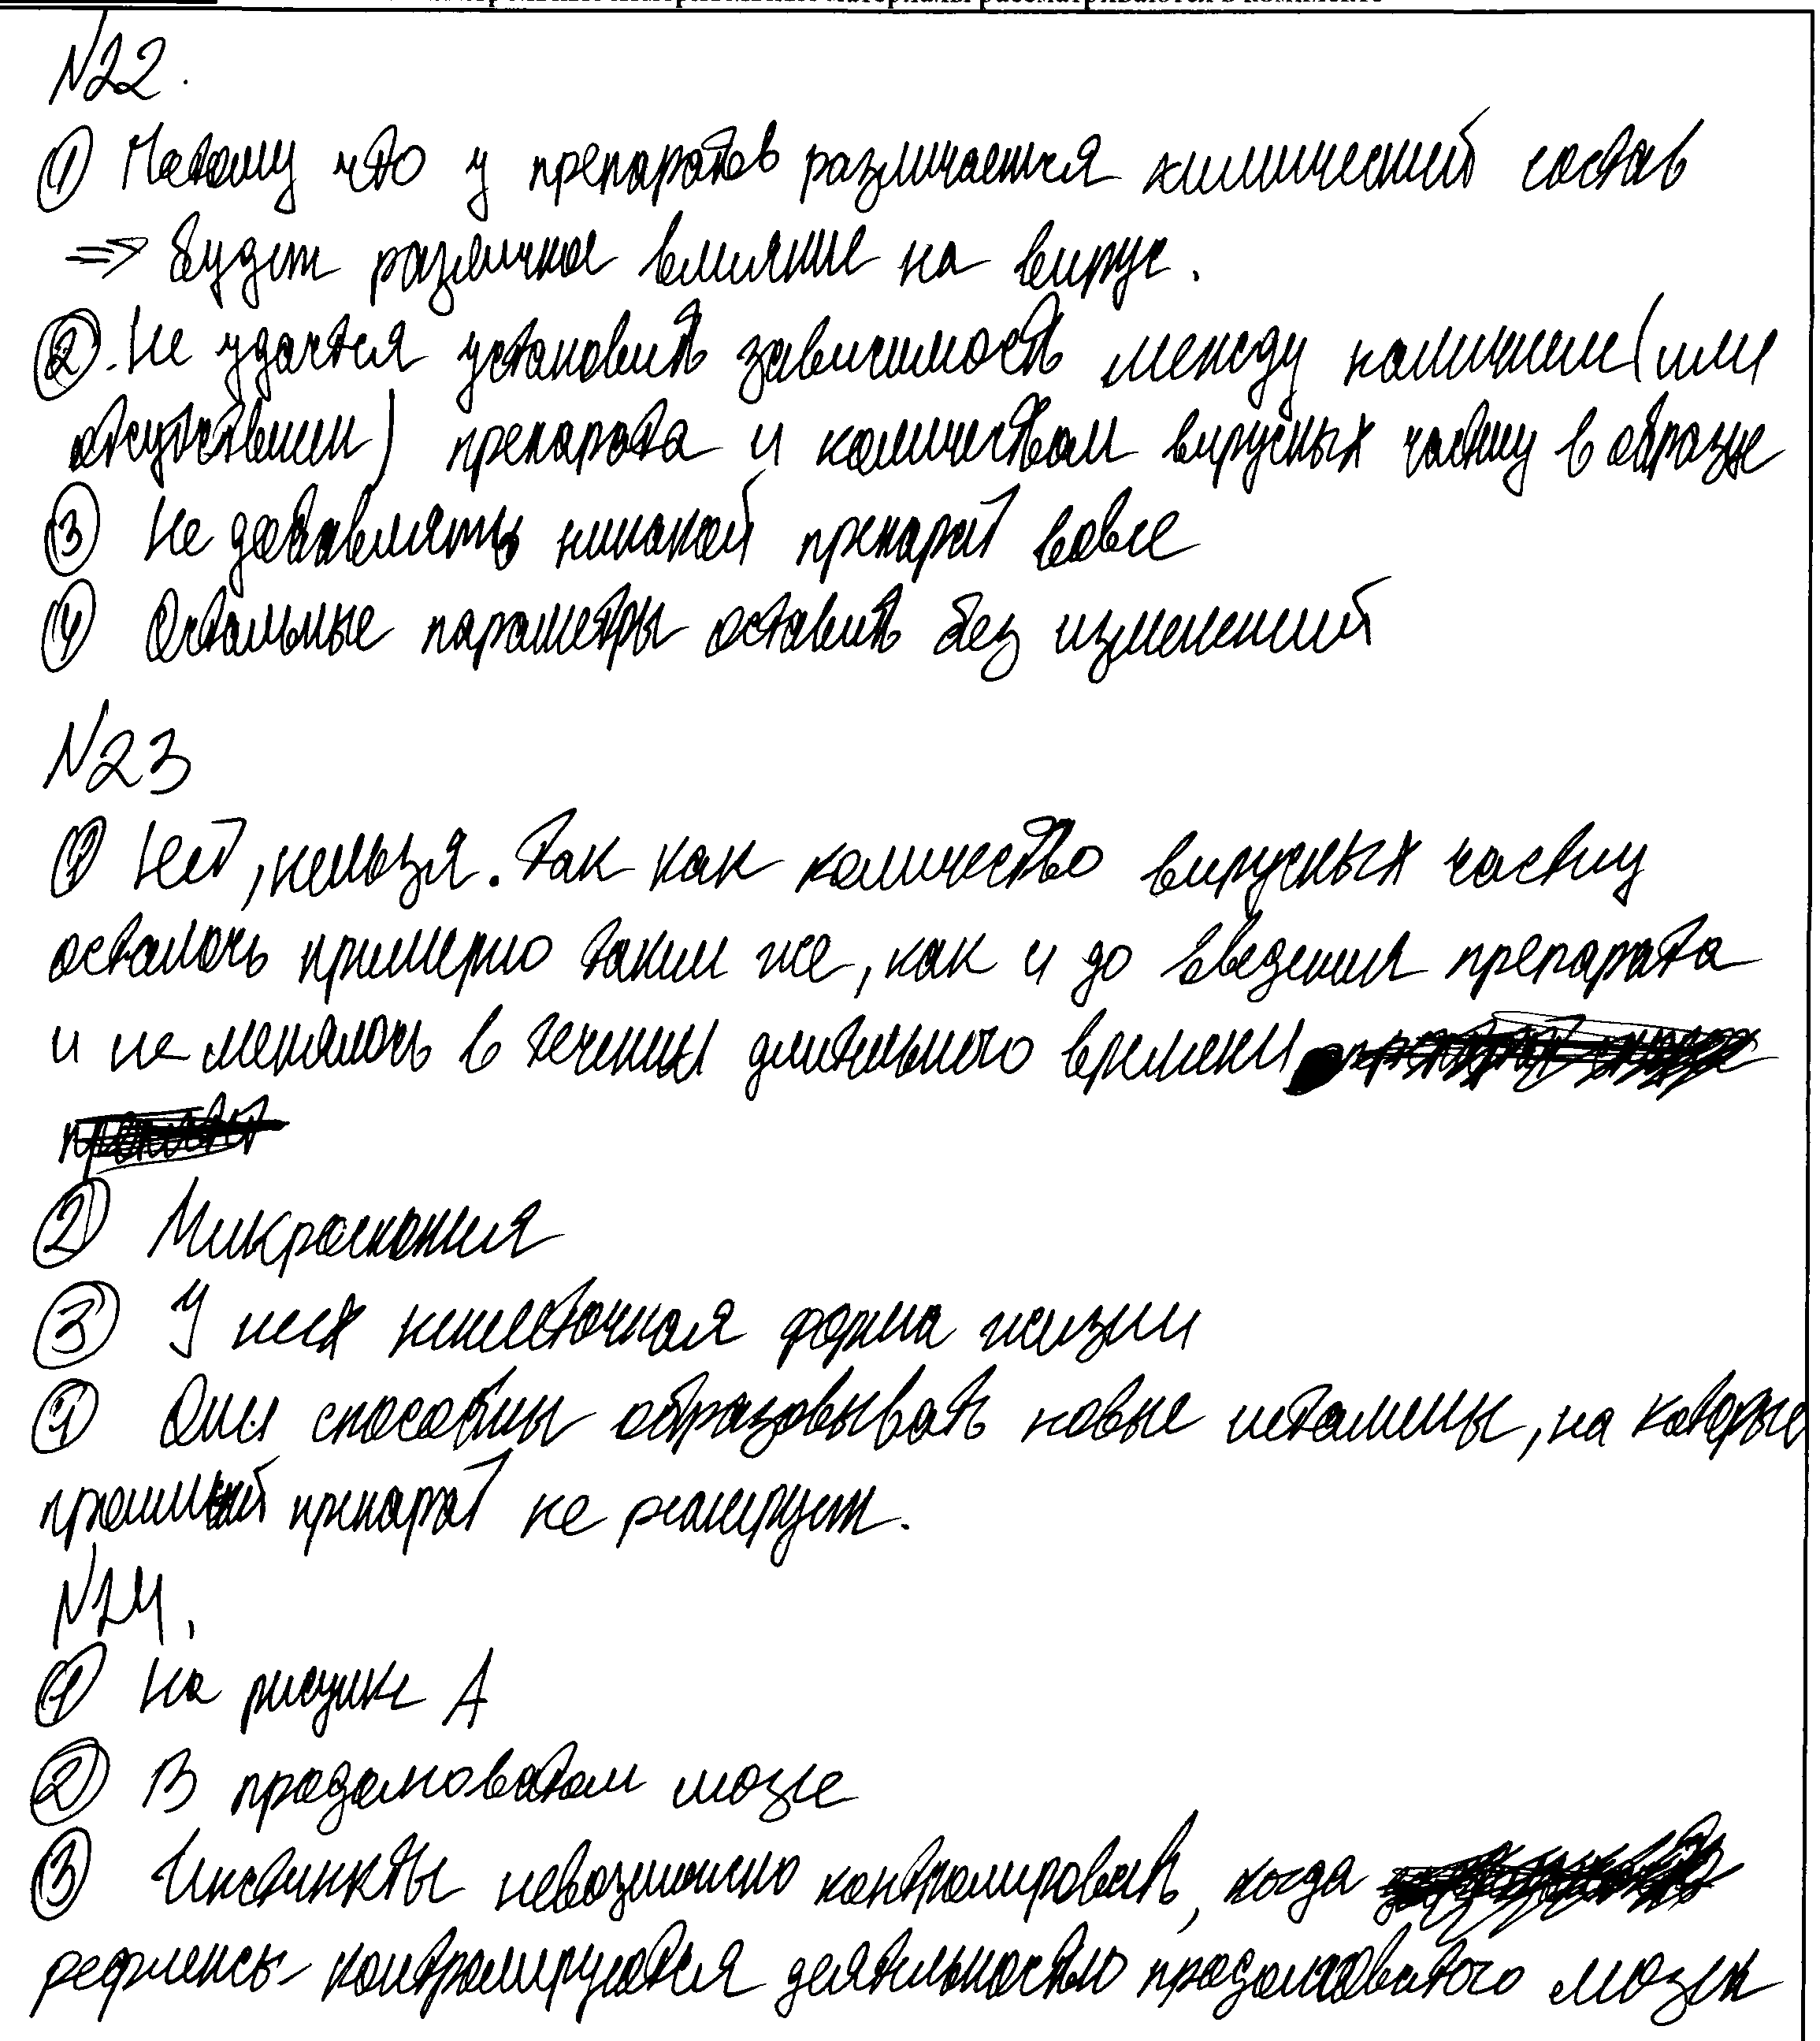 N22.
① Потому что у препаратов различается химический состав
=> будет различное влияние на вирус.
②. Не удастся установить зависимость между наличием (или
отсутствием) препарата и количеством вирусных частиц в образце
③ Не добавлять никакой препарат вовсе
④ Остальные параметры оставить без изменений
N23
① Нет, нельзя. Так как количество вирусных частиц
осталось примерно таким же, как и до введения препарата
и не менялось в течении длительного времени
② Микроскопия
③ У них неклеточная форма жизни
④ Они способны образовывать новые штаммы, на которые
прошлый препарат не реагирует.
N24.
① На рисунке А
② В продолговатом мозге
③ Инстинкты невозможно контролировать, когда
рефлексы контролируются деятельностью продолговатого мозга